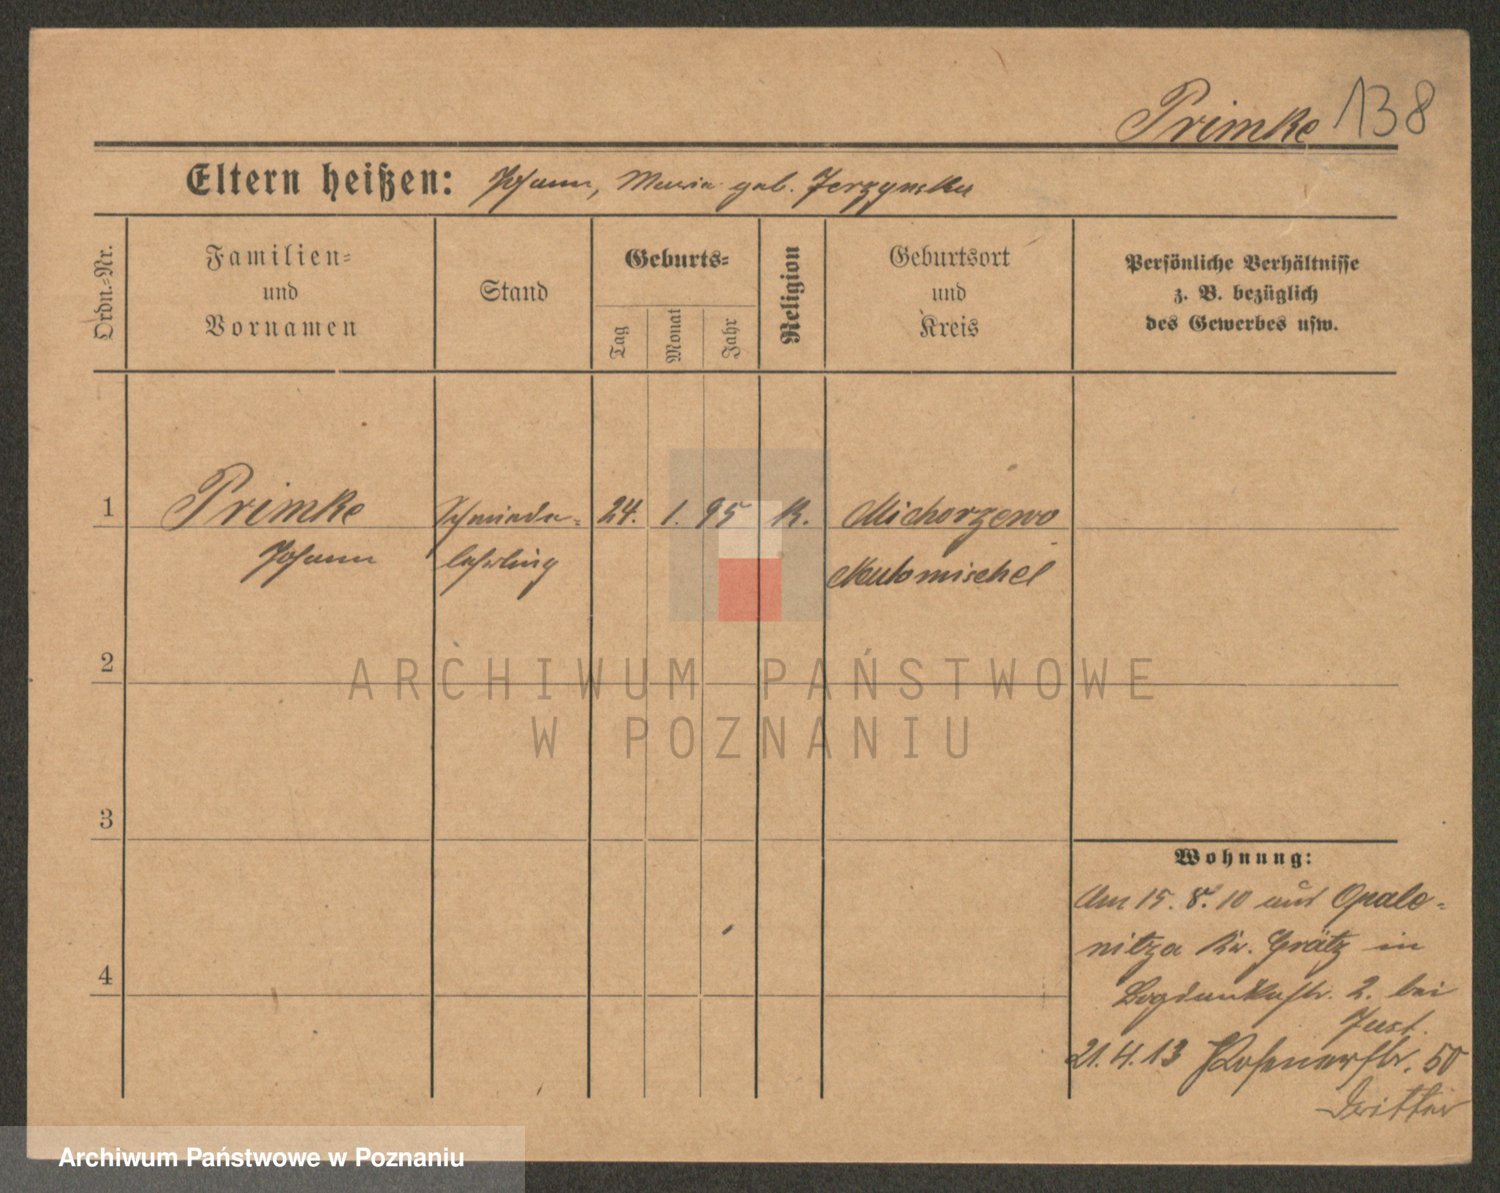 Primke 138
Eltern heißen: Johann, Maria geb. Jerzynska
Ordn.-Nr.
Familien-
und
Vornamen
Stand
Geburts-
Tag
Monat
Jahr
Religion
Geburtsort
und
Kreis
Persönliche Verhältnisse
z. B. bezüglich
des Gewerbes usw.
1 Primke Schmiede- 24. 1. 95 K. Michorzewo
Johann lehrling Neutomischel
2
3
4
Wohnung:
Am 15. 8. 10 aus Opale-
nitza Kr. Grätz in
Bogdankastr. 2. bei
Just.
21.4.13 Posenerstr. 50
ARCHIWUM PAŃSTWOWE
W POZNANIU
Archiwum Państwowe w Poznaniu